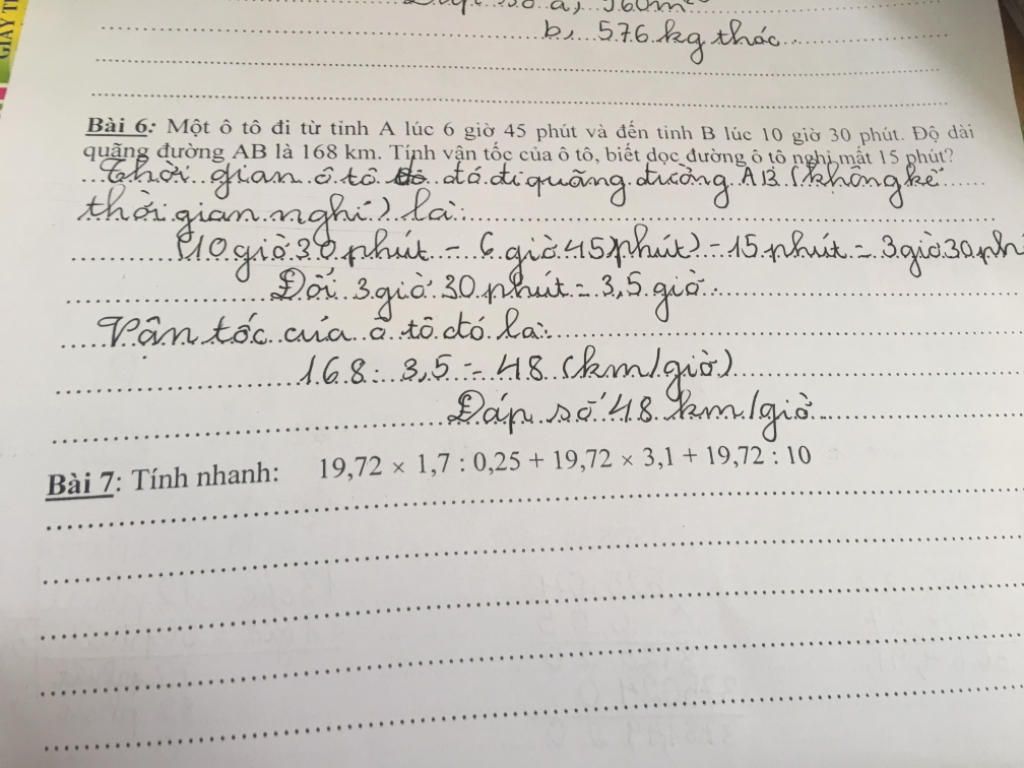 GIẤY T
số a, 360m²
b, 576 kg thóc
Bài 6: Một ô tô đi từ tỉnh A lúc 6 giờ 45 phút và đến tỉnh B lúc 10 giờ 30 phút. Độ dài
quãng đường AB là 168 km. Tính vận tốc của ô tô, biết dọc đường ô tô nghỉ mất 15 phút?
Thời gian ô tô đó đi quãng đường AB (không kể
thời gian nghỉ) là:
(10 giờ 30 phút - 6 giờ 45 phút) - 15 phút = 3 giờ 30 ph
Đổi 3 giờ 30 phút = 3,5 giờ
Vận tốc của ô tô đó là:
168 : 3,5 = 48 (km/giờ)
Đáp số 48 km/giờ
Bài 7: Tính nhanh: 19,72 × 1,7 : 0,25 + 19,72 × 3,1 + 19,72 : 10